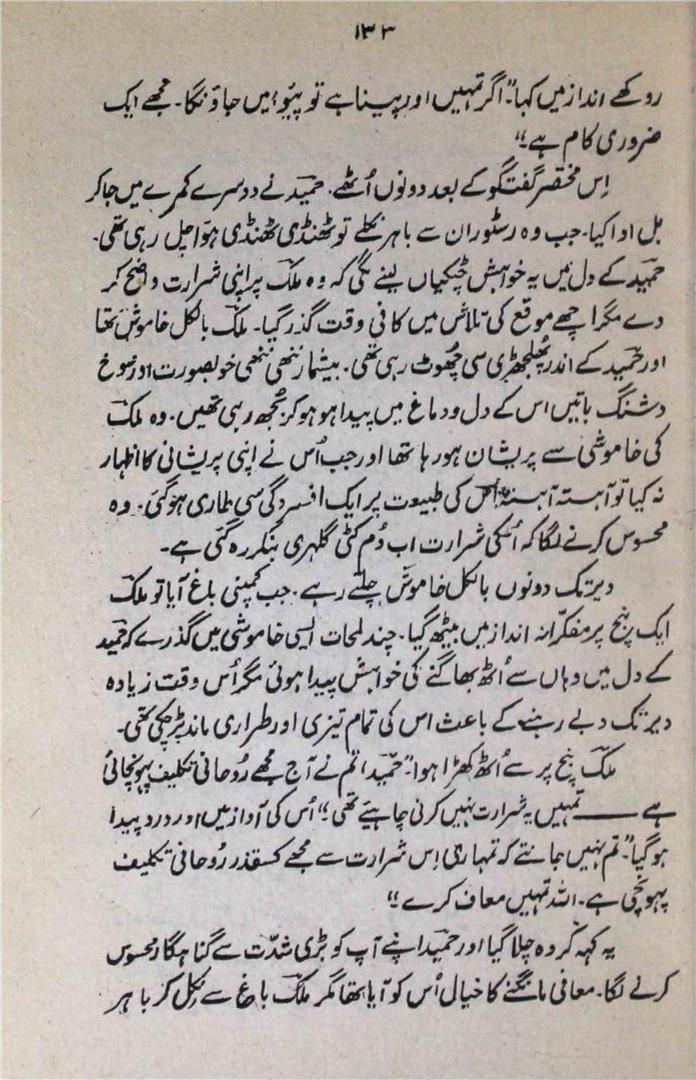 ۱۳۳
روکھے انداز میں کہا۔ "اگر تمہیں اور پینا ہے تو پیئو، میں جاؤنگا۔ مجھے ایک
ضروری کام ہے۔"
اِس مختصر گفتگو کے بعد دونوں اُٹھے۔ حمید نے دوسرے کمرے میں جا کر
بل ادا کیا۔ جب وہ رسٹوران سے باہر نکلے تو ٹھنڈی ٹھنڈی ہوا چل رہی تھی۔
حمید کے دل میں یہ خواہش چٹکیاں لینے لگی کہ وہ ملک پر اپنی شرارت واضح کر
دے مگر اچھے موقع کی تلاش میں کافی وقت گذر گیا۔ ملک بالکل خاموش تھا
اور حمید کے اندر پھلجھڑی سی چھوٹ رہی تھی۔ بیشمار ننھی ننھی خوبصورت اور شوخ
و شنگ باتیں اس کے دل و دماغ میں پیدا ہو ہو کر بجھ رہی تھیں۔ وہ ملک
کی خاموشی سے پریشان ہو رہا تھا اور جب اُس نے اپنی پریشانی کا اظہار
نہ کیا تو آہستہ آہستہ اس کی طبیعت پر ایک افسردگی سی طاری ہو گئی۔ وہ
محسوس کرنے لگا کہ اُسکی شرارت اب دُم کٹی گلہری بنکر رہ گئی ہے۔
دیر تک دونوں بالکل خاموش چلتے رہے۔ جب کمپنی باغ آیا تو ملک
ایک بنچ پر مفکرانہ انداز میں بیٹھ گیا۔ چند لمحات ایسی خاموشی میں گذرے کہ حمید
کے دل میں وہاں سے اُٹھ بھاگنے کی خواہش پیدا ہوئی مگر اُس وقت زیادہ
دیر تک دبے رہنے کے باعث اس کی تمام تیزی اور طراری ماند پڑ چکی تھی۔
ملک بنچ پر سے اُٹھ کھڑا ہوا۔ "حمید! تم نے آج مجھے رُوحانی تکلیف پہونچائی
ہے ــــــ تمہیں یہ شرارت نہیں کرنی چاہیئے تھی۔" اُس کی آواز میں اور درد پیدا
ہو گیا۔ "تم نہیں جانتے کہ تمہاری اِس شرارت سے مجھے کسقدر رُوحانی تکلیف
پہونچی ہے۔ اللہ تمہیں معاف کرے۔"
یہ کہہ کر وہ چلا گیا اور حمید اپنے آپ کو بڑی شدّت سے گناہگار محسوس
کرنے لگا۔ معافی مانگنے کا خیال اُس کو آیا تھا مگر ملک باغ سے نکل کر باہر